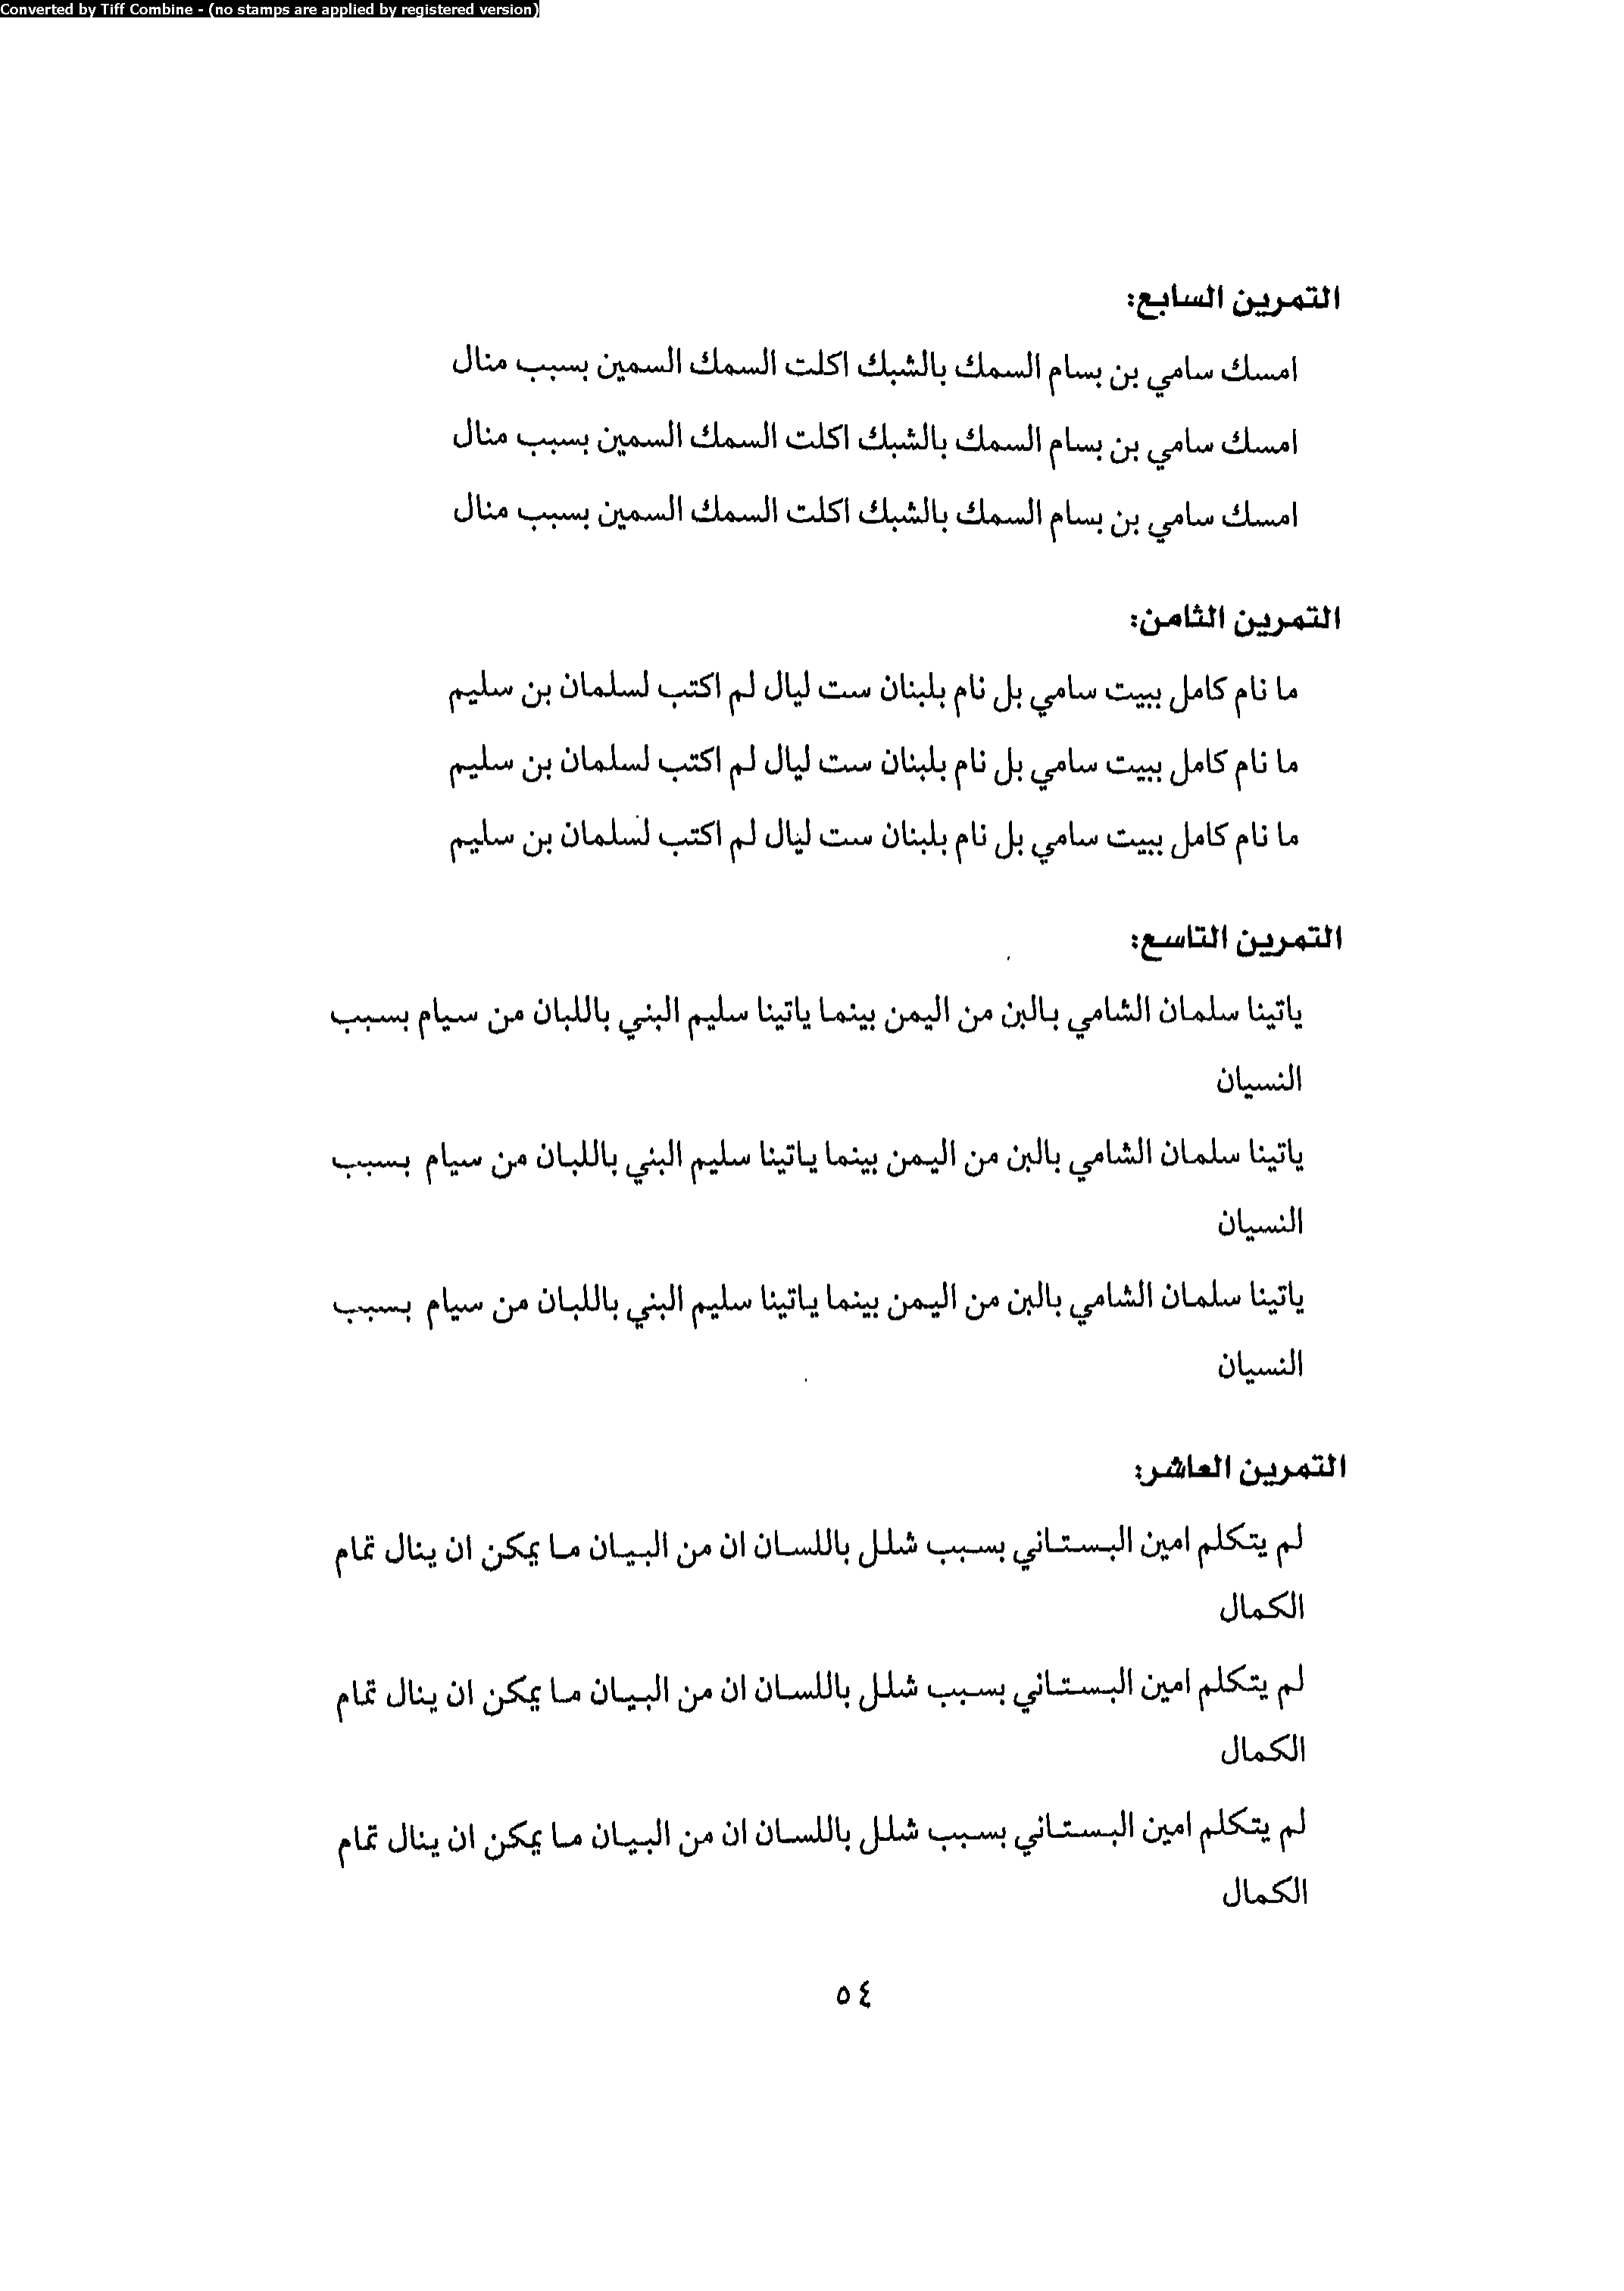 Converted by Tiff Combine - (no stamps are applied by registered version)
التمرين السابع:
امسك سامي بن بسام السمك بالشبك اكلت السمك السمين بسبب منال
امسك سامي بن بسام السمك بالشبك اكلت السمك السمين بسبب منال
امسك سامي بن بسام السمك بالشبك اكلت السمك السمين بسبب منال
التمرين الثامن:
ما نام كامل ببيت سامي بل نام بلبنان ست ليال لم اكتب لسلمان بن سليم
ما نام كامل ببيت سامي بل نام بلبنان ست ليال لم اكتب لسلمان بن سليم
ما نام كامل ببيت سامي بل نام بلبنان ست ليال لم اكتب لسلمان بن سليم
التمرين التاسع:
ياتينا سلمان الشامي بالبن من اليمن بينما ياتينا سليم البني باللبان من سيام بسبب
النسيان
ياتينا سلمان الشامي بالبن من اليمن بينما ياتينا سليم البني باللبان من سيام بسبب
النسيان
ياتينا سلمان الشامي بالبن من اليمن بينما ياتينا سليم البني باللبان من سيام بسبب
النسيان
التمرين العاشر:
لم يتكلم امين البستاني بسبب شلل باللسان ان من البيان ما يمكن ان ينال تمام
الكمال
لم يتكلم امين البستاني بسبب شلل باللسان ان من البيان ما يمكن ان ينال تمام
الكمال
لم يتكلم امين البستاني بسبب شلل باللسان ان من البيان ما يمكن ان ينال تمام
الكمال
٥٤